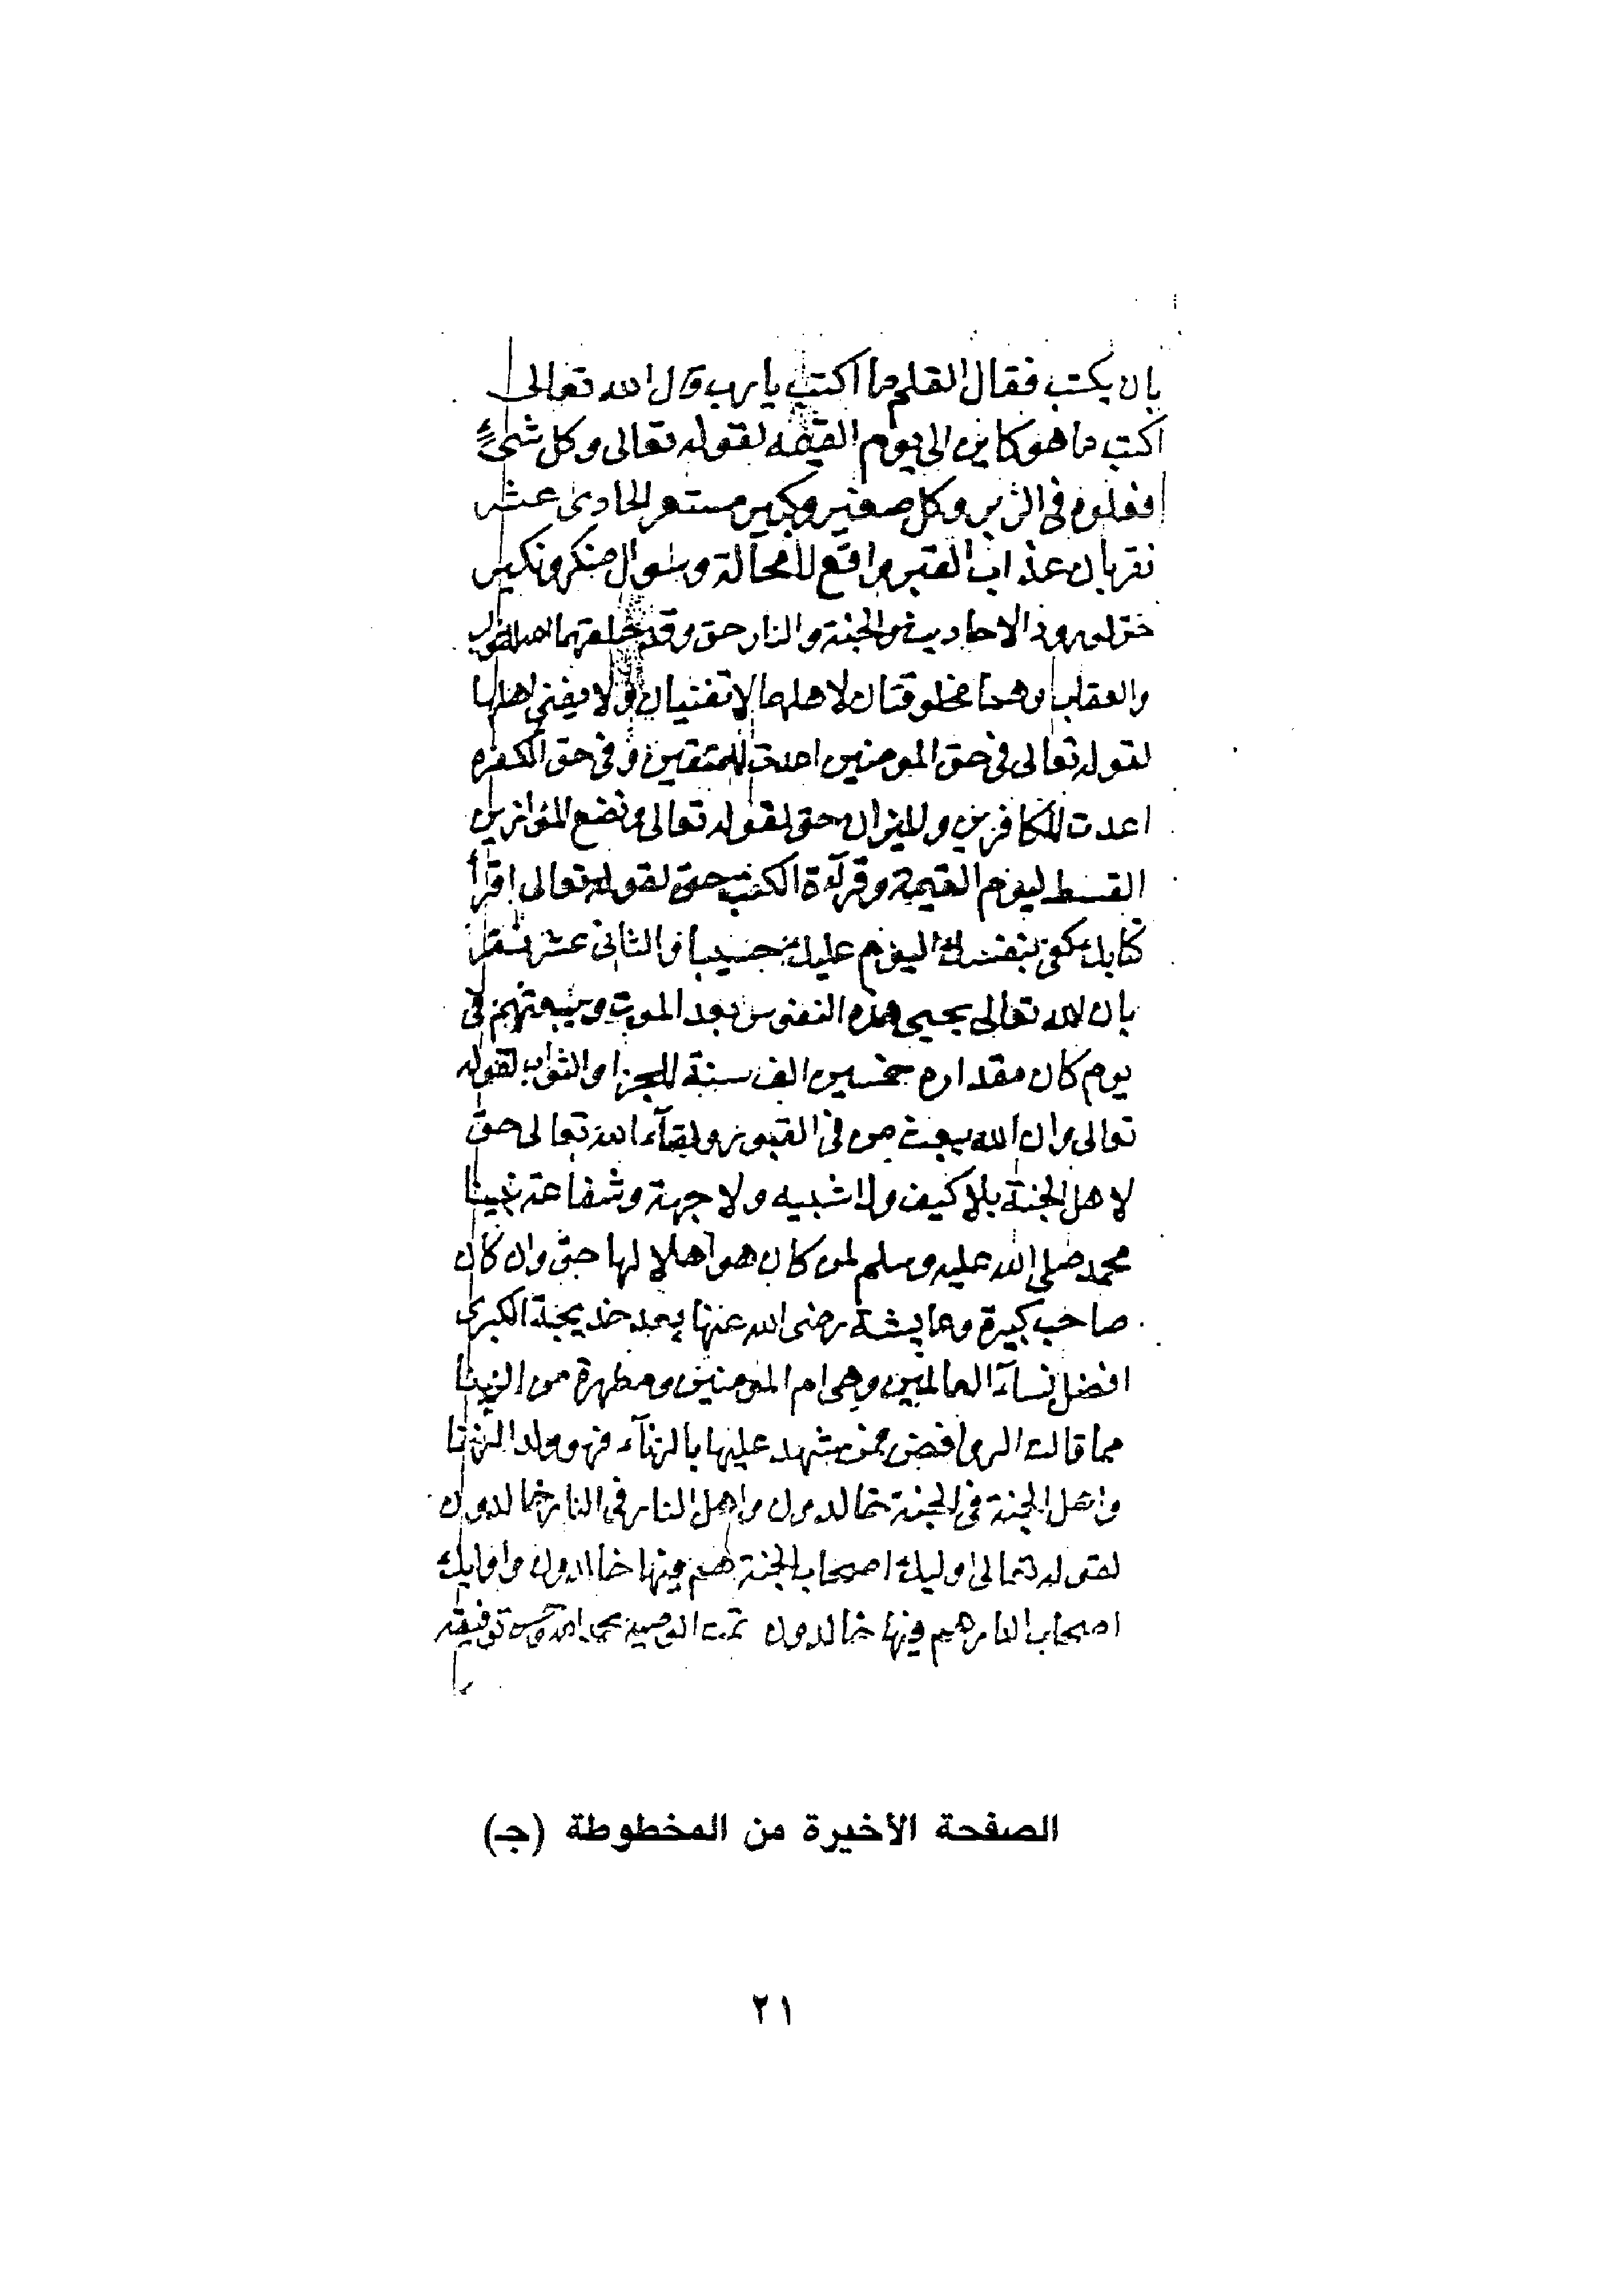 بان يكتب فقال القلم ما اكتب يا رب قال الله تعالى
اكتب ما هو كاين الى يوم القيمه لقوله تعالى وكل شئ
افعلوه فى الزبر وكل صغير وكبير مستطر الحادى عشر
نقر بان عذاب القبر واقع لا محالة وسوال منكر ونكير
حق لورود الاحاديث والجنة والنار حق وقد خلقتهما
والعقاب وهما مخلوقتان لاهلهما لا تفنيان ولا يفنى اهلها
لقوله تعالى فى حق المومنين اعدت للمتقين وفى حق الكفره
اعدت للكافرين والميزان حق لقوله تعالى ونضع الموازين
القسط ليوم القيمة وقرآءة الكتب حق لقوله تعالى اقرأ
كتابك كفى بنفسك اليوم عليك حسيبا والثانى عشر نقر
بان الله تعالى يحيى هذه النفوس بعد الموت ويبعثهم فى
يوم كان مقداره خمسين الف سنة للجزا والثواب لقوله
تعالى وان الله يبعث من فى القبور ولقآء الله تعالى حق
لاهل الجنة بلا كيف ولا شبيه ولا جهة وشفاعة نبينا
محمد صلى الله عليه وسلم لمن كان هو اهلا لها حق وان كان
صاحب كبيرة وعايشة رضى الله عنها بعد خديجة الكبرى
افضل نسآء العالمين وهى ام المومنين ومطهرة من الزنا
مما قالت الروافض فمن شهد عليها بالزنآء فهو ولد الزنا
واهل الجنة فى الجنة خالدون واهل النار فى النار خالدون
لقوله تعالى اوليك اصحاب الجنة هم فيها خالدون واوليك
اصحاب النار هم فيها خالدون تمت الوصية بحمد الله وحسن توفيقه
الصفحة الأخيرة من المخطوطة (جـ)
٢١